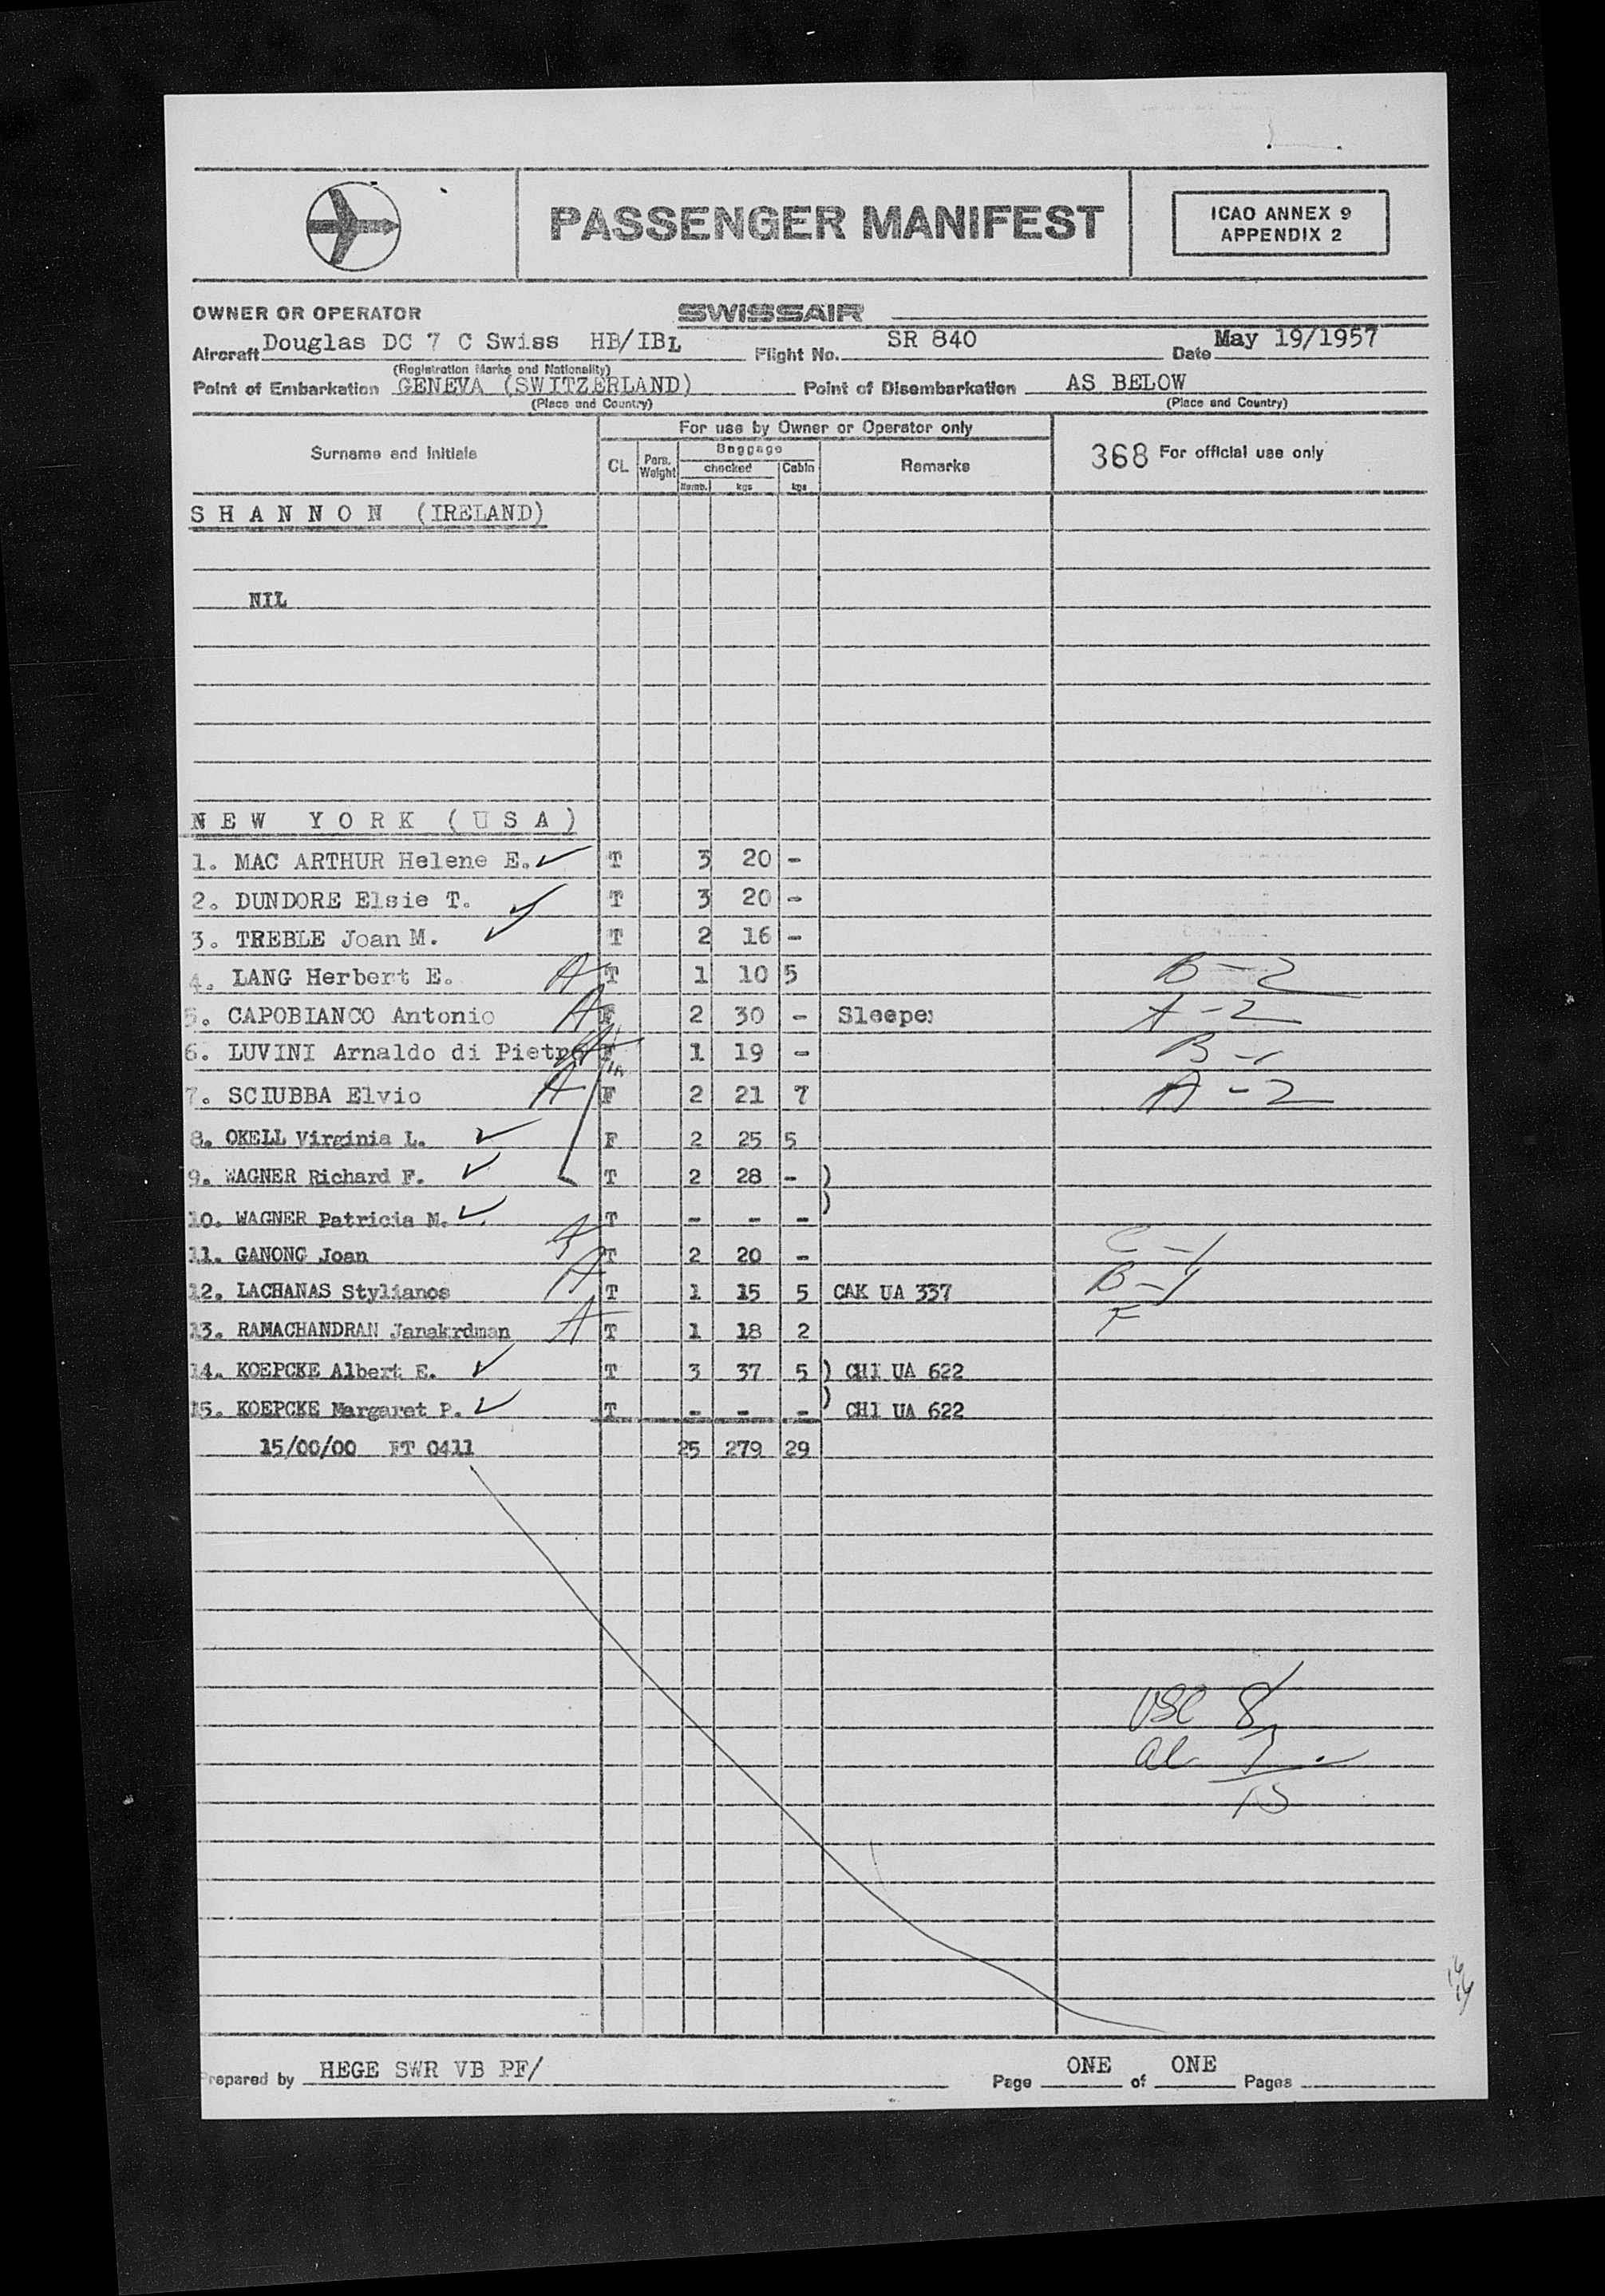 PASSENGER MANIFEST
ICAO ANNEX 9
APPENDIX 2
OWNER OR OPERATOR SWISSAIR
Aircraft Douglas DC 7 C Swiss HB/IBL Flight No. SR 840 Date May 19/1957
(Registration Marks and Nationality)
Point of Embarkation GENEVA (SWITZERLAND) Point of Disembarkation AS BELOW
(Place and Country) (Place and Country)
For use by Owner or Operator only
Surname and Initials CL Pers. Weight Baggage checked Numb. kgs Cabin kgs Remarks 368 For official use only
SHANNON (IRELAND)
NIL
NEW YORK (USA)
1. MAC ARTHUR Helene E. T 3 20 -
2. DUNDORE Elsie T. T 3 20 -
3. TREBLE Joan M. T 2 16 -
4. LANG Herbert E. A T 1 10 5 B-2
5. CAPOBIANCO Antonio A F 2 30 - Sleeper A-2
6. LUVINI Arnaldo di Pietro A F 1 19 - B-1
7. SCIUBBA Elvio A F 2 21 7 A-2
8. OKELL Virginia L. F 2 25 5
9. WAGNER Richard F. T 2 28 - )
)
10. WAGNER Patricia M. T - - -
11. GANONG Joan A T 2 20 - C-1
12. LACHANAS Stylianos A T 1 15 5 CAK UA 337 B-1
13. RAMACHANDRAN Janakrdman A T 1 18 2 F
14. KOEPCKE Albert E. T 3 37 5 ) CHI UA 622
15. KOEPCKE Margaret P. T - - - ) CHI UA 622
15/00/00 FT 0411 25 279 29
USC 8
al 7
15
Prepared by HEGE SWR VB PF/ Page ONE of ONE Pages